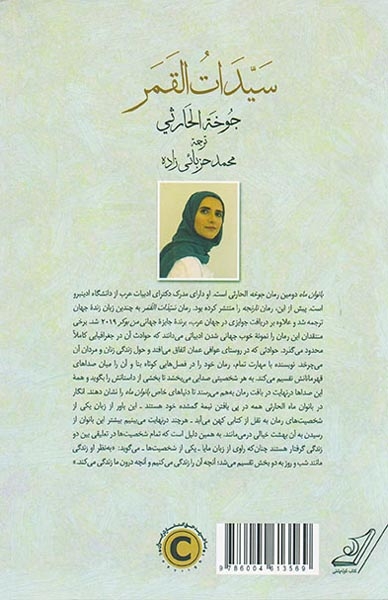 سَيِّدَاتُ القَمَر
جُوخَة الحَارثي
ترجمهٔ
محمد حزبائی‌زاده
بانوان ماه دومین رمان جوخه الحارثی است. او دارای مدرک دکترای ادبیات عرب از دانشگاه ادینبرو
است. پیش از این، رمان نارنجه را منتشر کرده بود. رمان سیّدات القمر به چندین زبان زندهٔ جهان
ترجمه شد و علاوه بر دریافت جوایزی در جهان عرب، برندهٔ جایزهٔ جهانی من بوکر ۲۰۱۹ شد. برخی
منتقدان این رمان را نمونهٔ خوب جهانی شدن ادبیاتی می‌دانند که حوادث آن در جغرافیایی کاملاً
محدود می‌گذرد. حوادثی که در روستای عوافی عمان اتفاق می‌افتد و حول زندگی زنان و مردان آن
می‌چرخد. نویسنده با مهارت تمام، زبان خود را در فصل‌هایی کوتاه بنا و آن را میان صداهای
قهرمانانش تقسیم می‌کند. به هر شخصیتی صدایی می‌بخشد تا بخشی از داستانش را بگوید و همهٔ
این صداها درنهایت در بافت رمان به‌هم می‌رسند تا دنیاهای خاص بانوان ماه را نشان دهند. انگار
در بانوان ماه الحارثی همه در پی یافتن نیمهٔ گمشدهٔ خود هستند - این باور از زبان یکی از
شخصیت‌های رمان به نقل از کتابی کهن می‌آید - هرچند درنهایت می‌بینیم بیشتر این بانوان از
رسیدن به آن بهشت خیالی درمی‌مانند. به همین دلیل است که تمام شخصیت‌ها در تعلیقی بین دو
زندگی گرفتار هستند چنان‌که راوی از زبان مایا - یکی از شخصیت‌ها - می‌گوید: «به‌نظر او زندگی
مانند شب و روز به دو بخش تقسیم می‌شد؛ آنچه آن را زندگی می‌کنیم و آنچه درون ما زندگی می‌کند.»
C
9 786004 613569
کتاب کوله‌پشتی